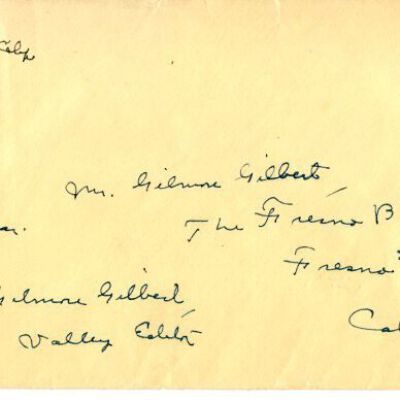 Mr. Gilmore Gilbert,
The Fresno B
Fresno
Cal
Gilmore Gilbert,
Valley Editor